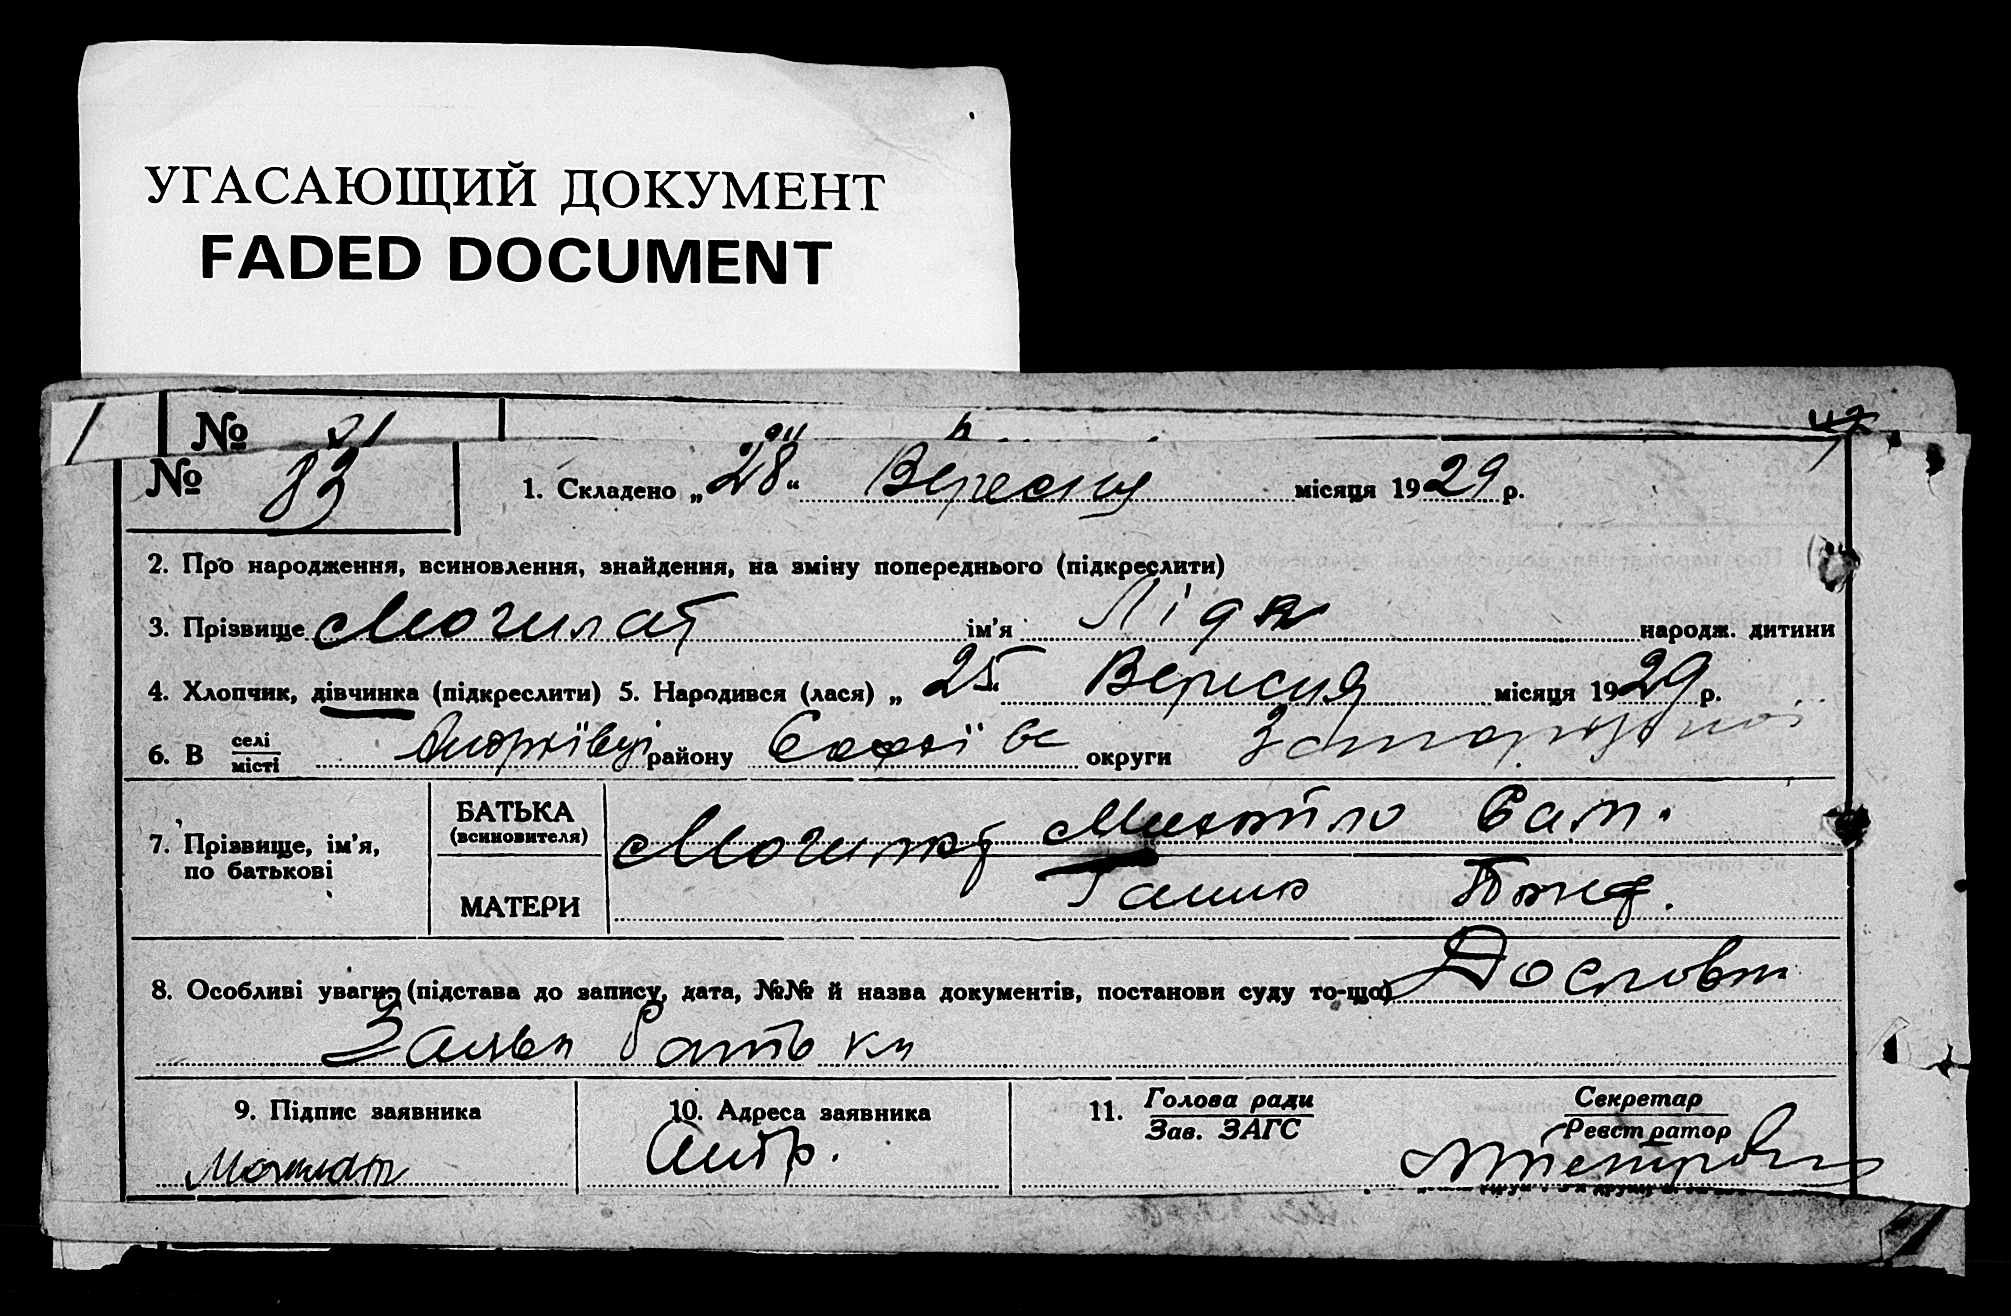 УГАСАЮЩИЙ ДОКУМЕНТ
FADED DOCUMENT
№
№ 83 1. Складено „28“ Вересня місяця 1929 р.
2. Про народження, всиновлення, знайдення, на зміну попереднього (підкреслити)
3. Прізвище Могилат ім'я Лідя народж. дитини
4. Хлопчик, дівчинка (підкреслити) 5. Народився (лася) „25“ Вересня місяця 1929 р.
6. В селі/місті Андріївці району Софіївс округи Запорізької
7. Прізвище, ім'я, по батькові
БАТЬКА (всиновителя) Могилат Михайло Сам.
МАТЕРИ Ганна
8. Особливі уваги: (підстава до запису, дата, №№ й назва документів, постанови суду то-що) Дословна
Заява батька
9. Підпис заявника 10. Адреса заявника 11. Голова ради/Зав. ЗАГС Секретар/Реєстратор
Могилат Андр.